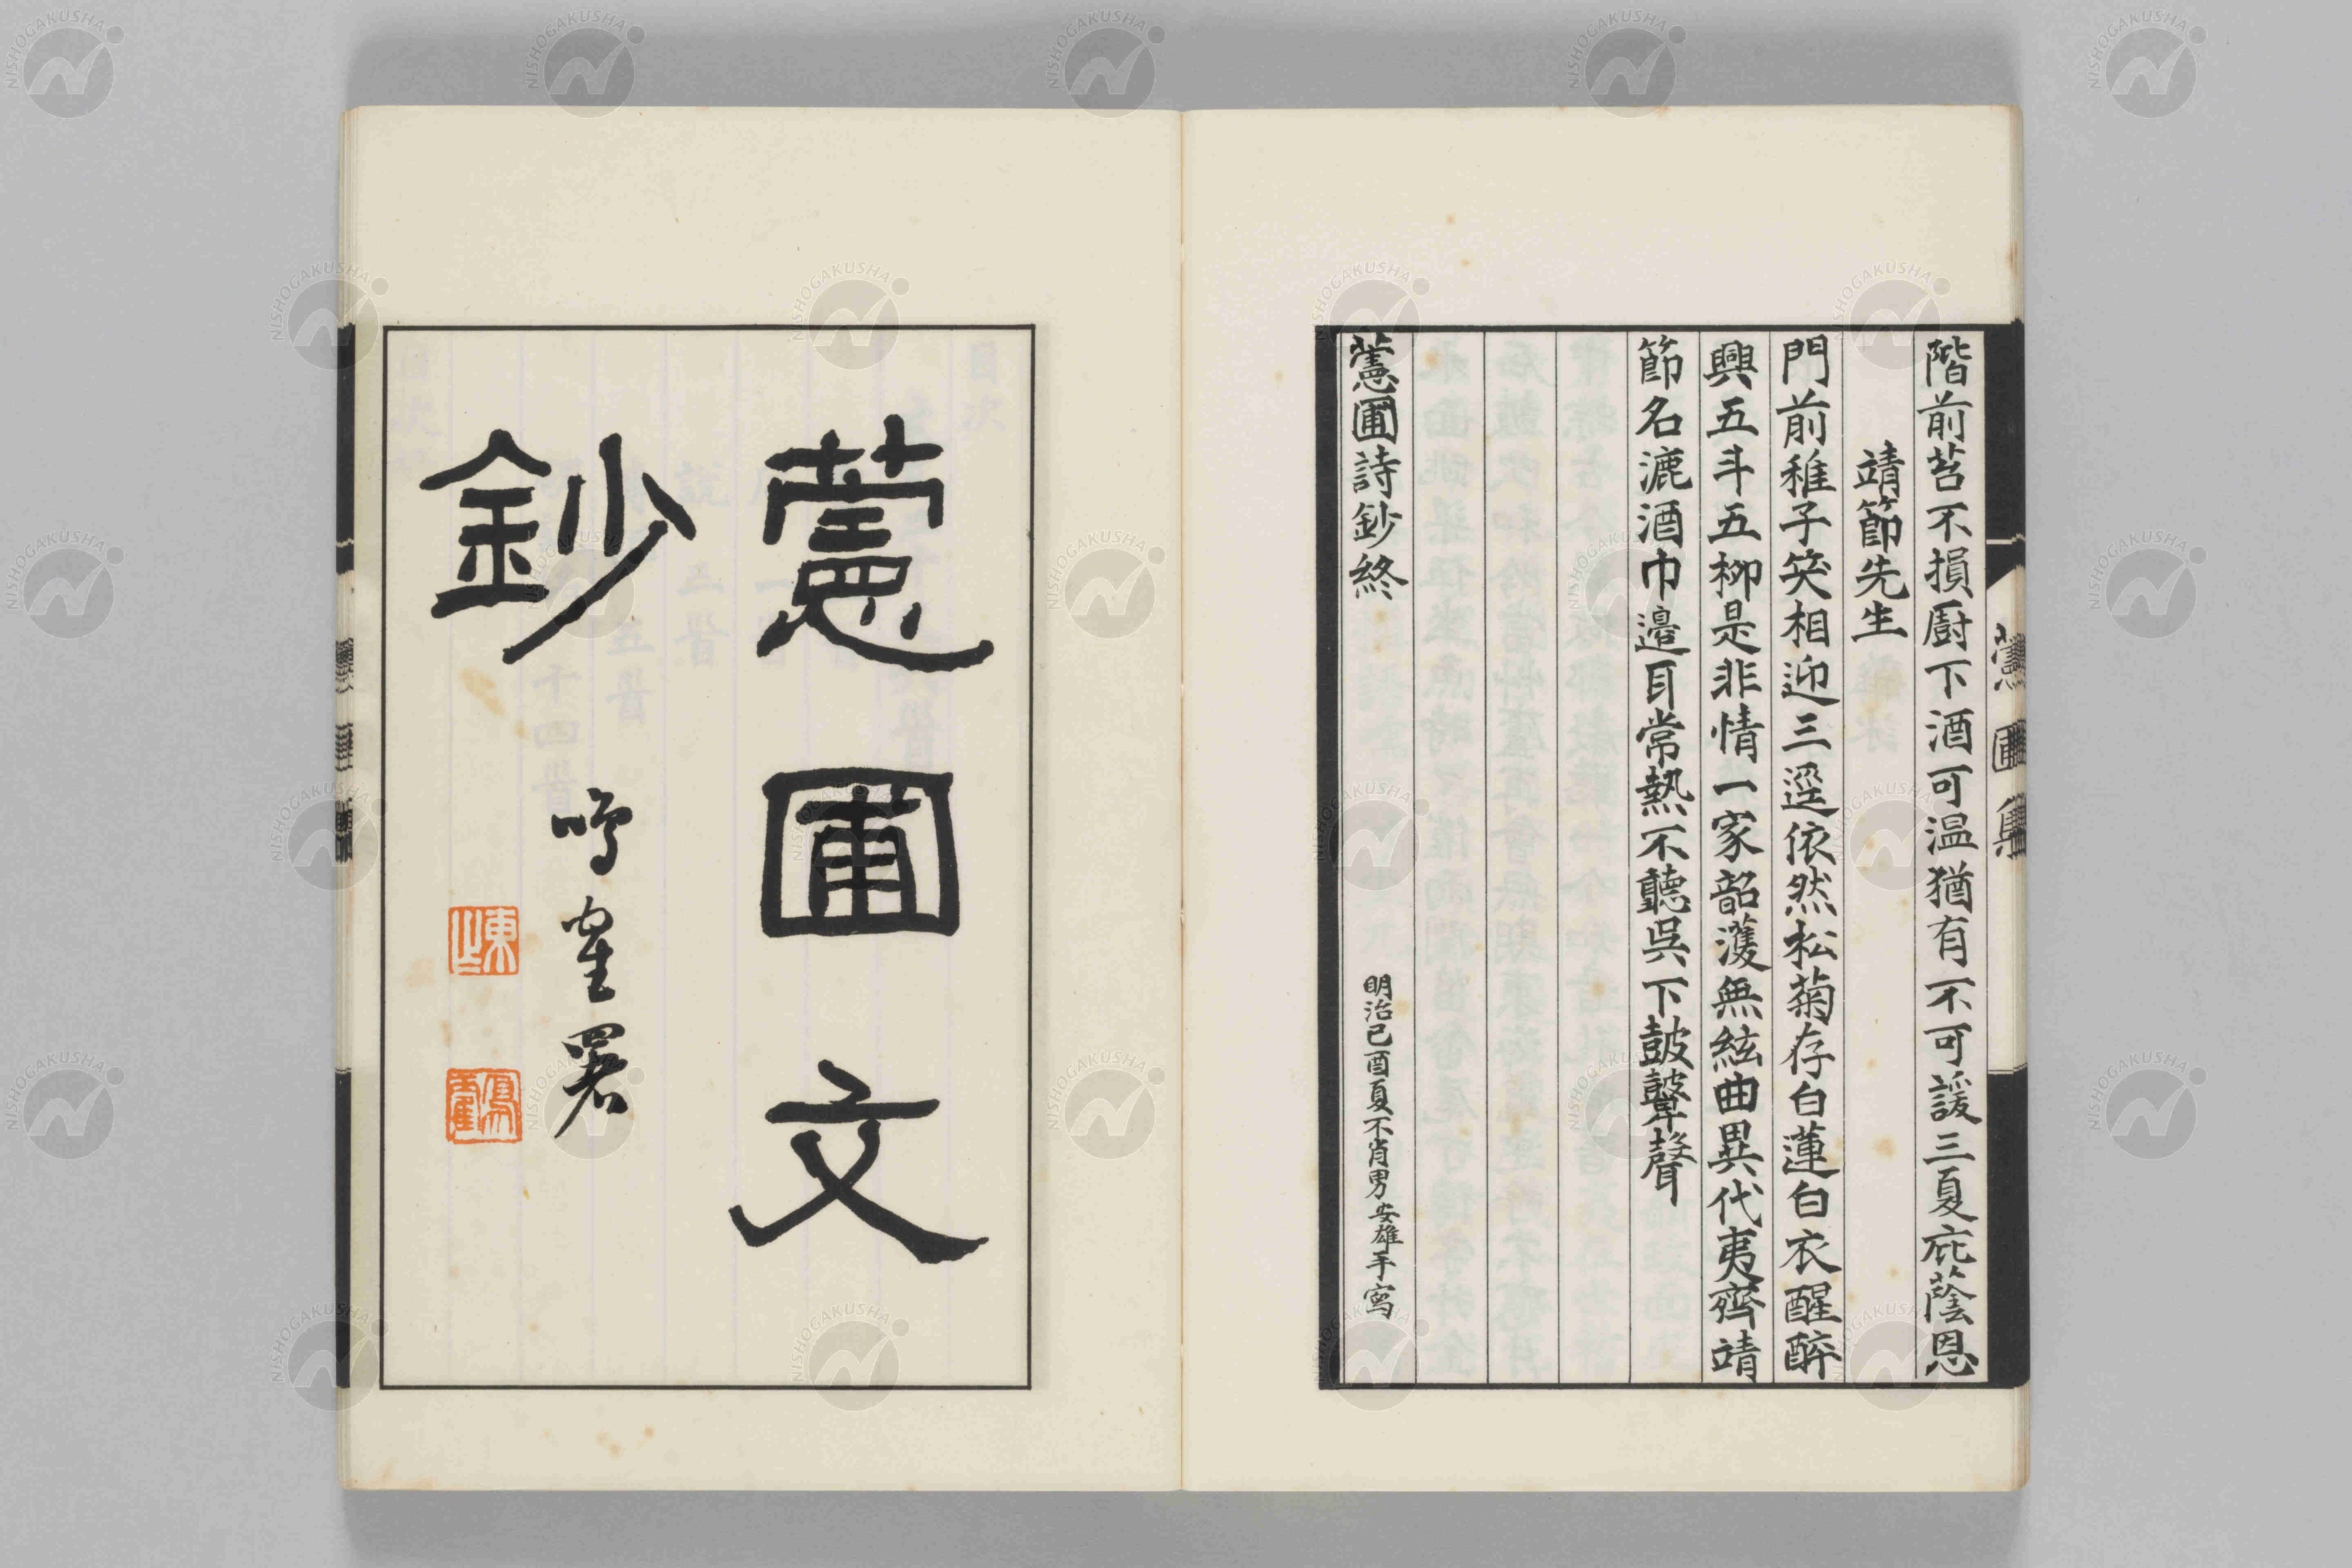 階前苔不損厨下酒可温猶有不可諼三夏庇蔭恩
靖節先生
門前稚子笑相迎三逕依然松菊存白蓮白衣醒醉
興五斗五柳是非情一家韶濩無絃曲異代夷齊靖
節名漉酒巾邉耳常熱不聽吳下鼓鼙聲
藼圃詩鈔終
明治己酉夏不肖男安雄手寫
藼圃文
鈔
鳴崔署
NISHOGAKUSHA